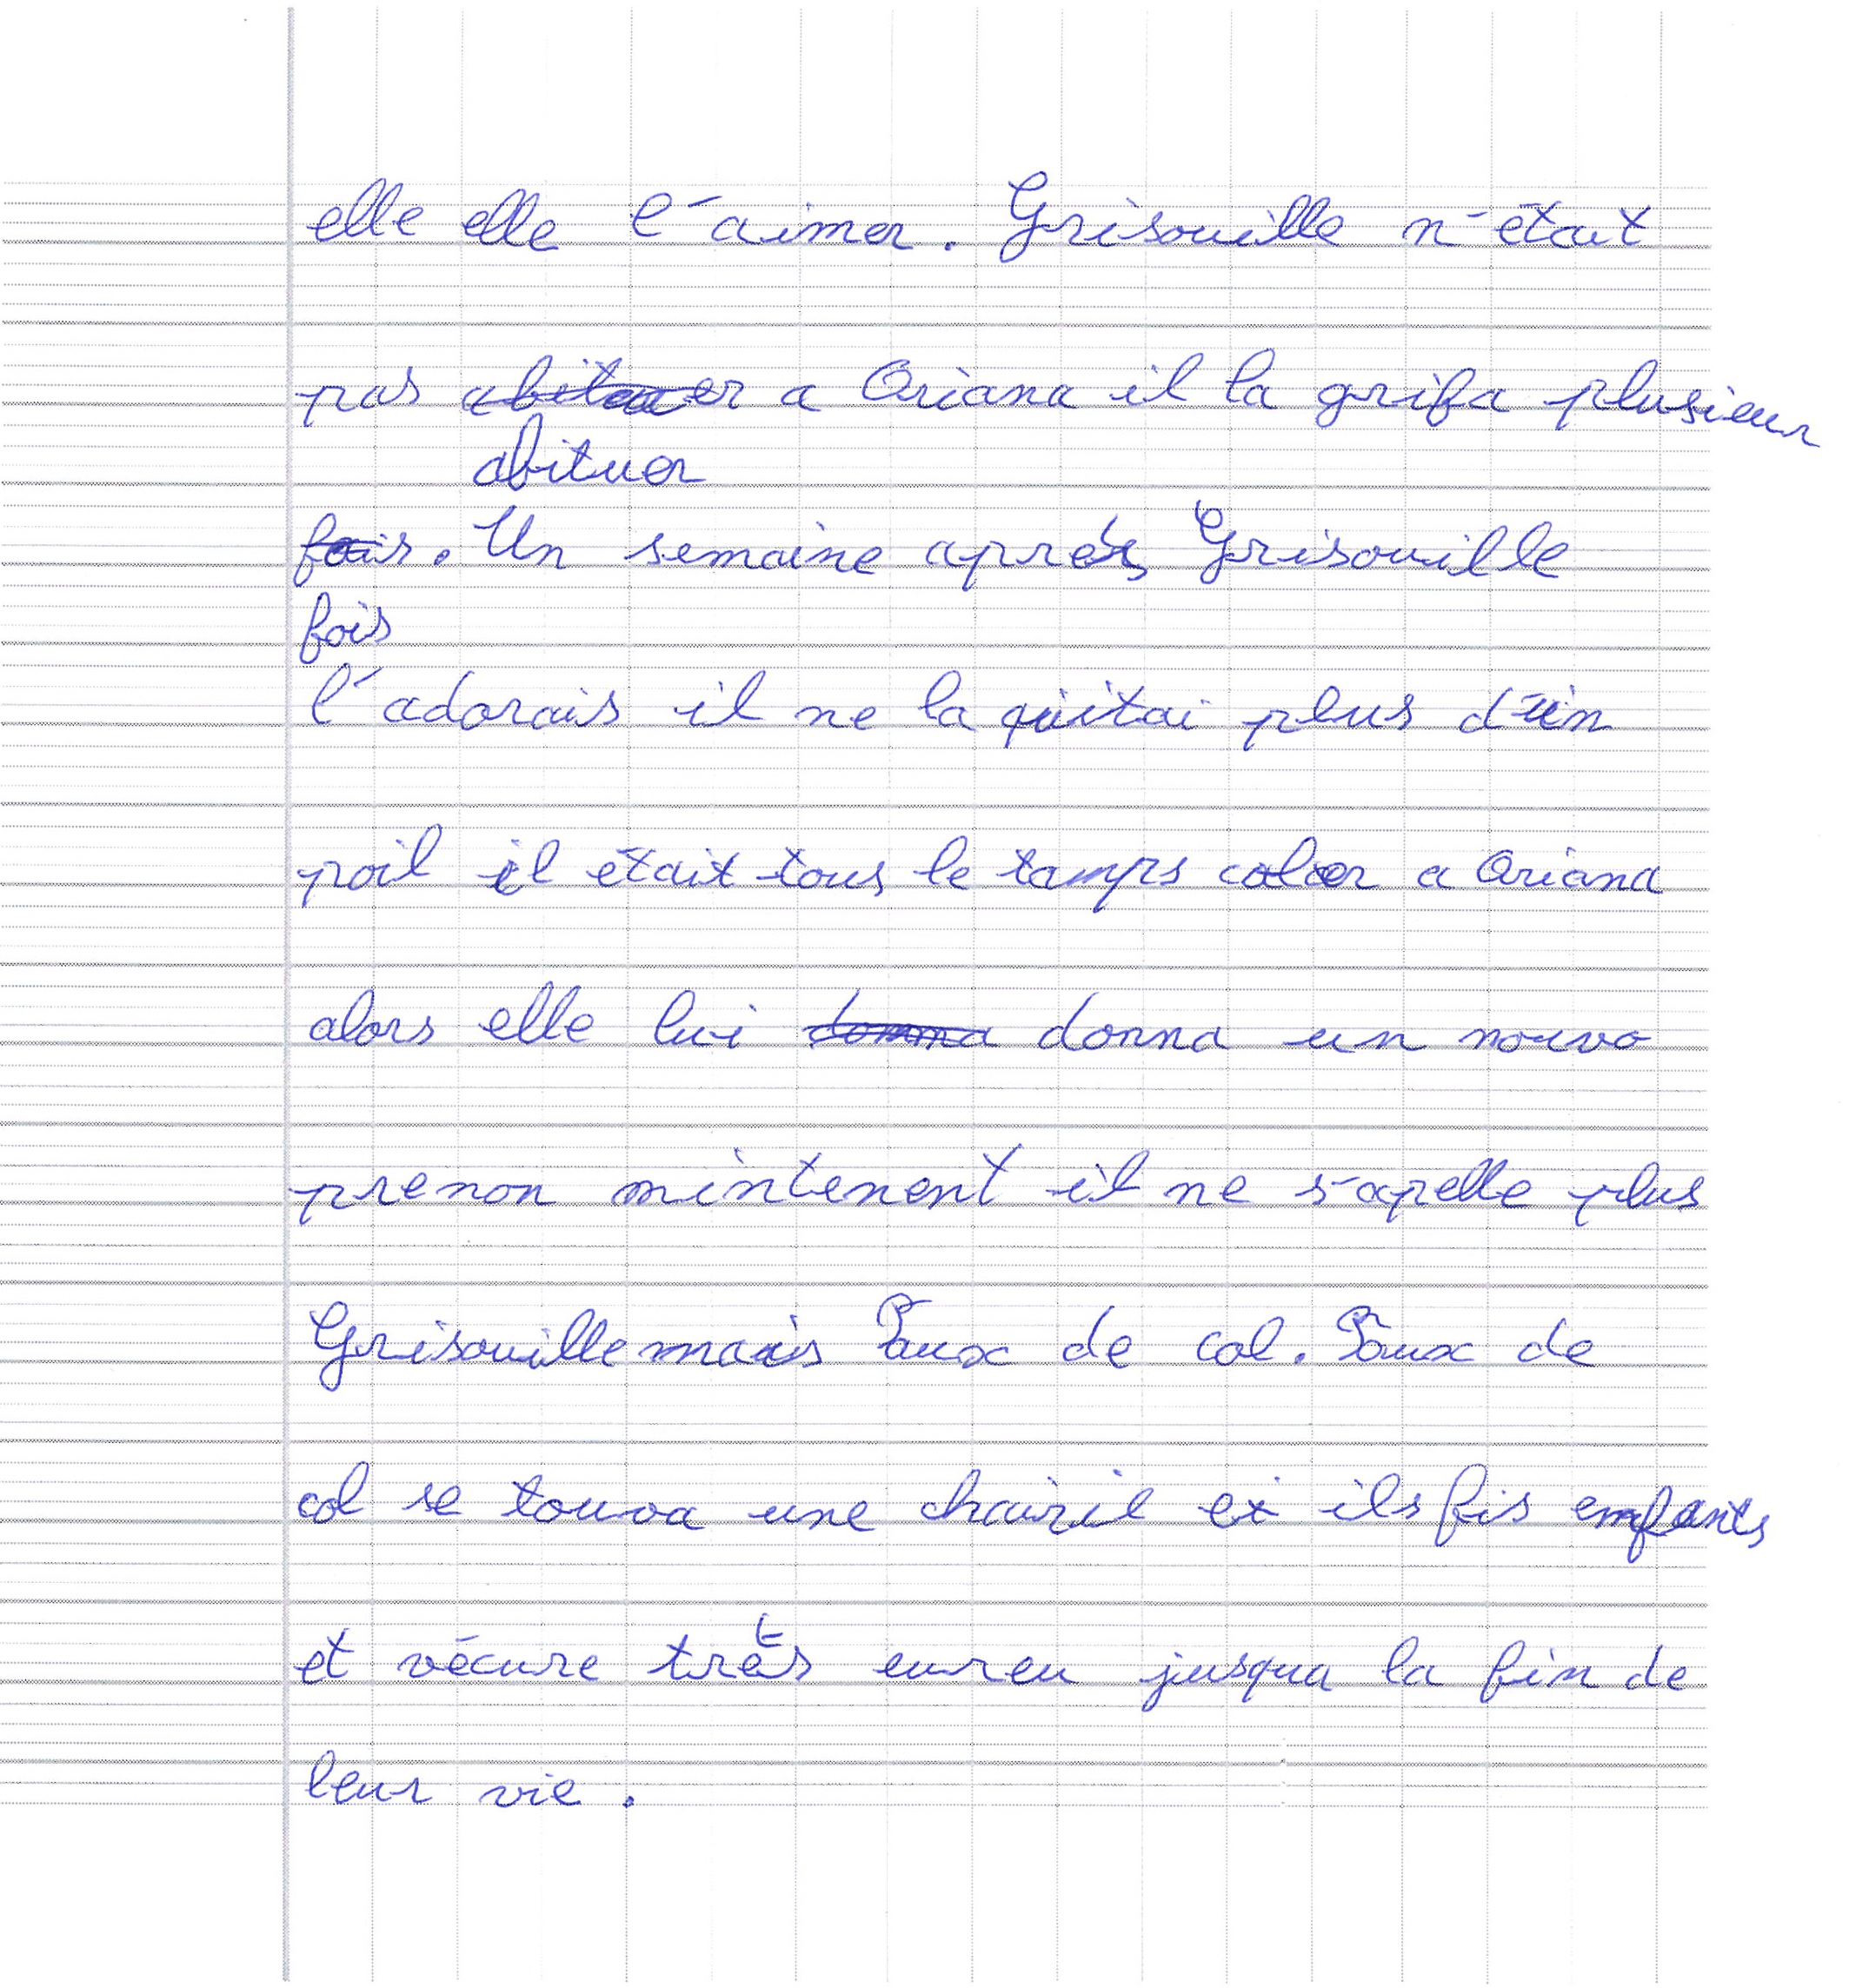 elle elle l'aimer. Grisouille n'était
pas abituer a Ariana il la grifa plusieur
abituer
fais. Un semaine après Grisouille
fois
l'adorais il ne la quitai plus d'un
poil il était tous le tamps coler a Ariana
alors elle lui donna donna un nouvo
prenon mintenent il ne s'apelle plus
Grisouille mais Paux de col. Paux de
col se touva une chairil et ils fis enfants
et vécure très eureu jusqua la fin de
leur vie.